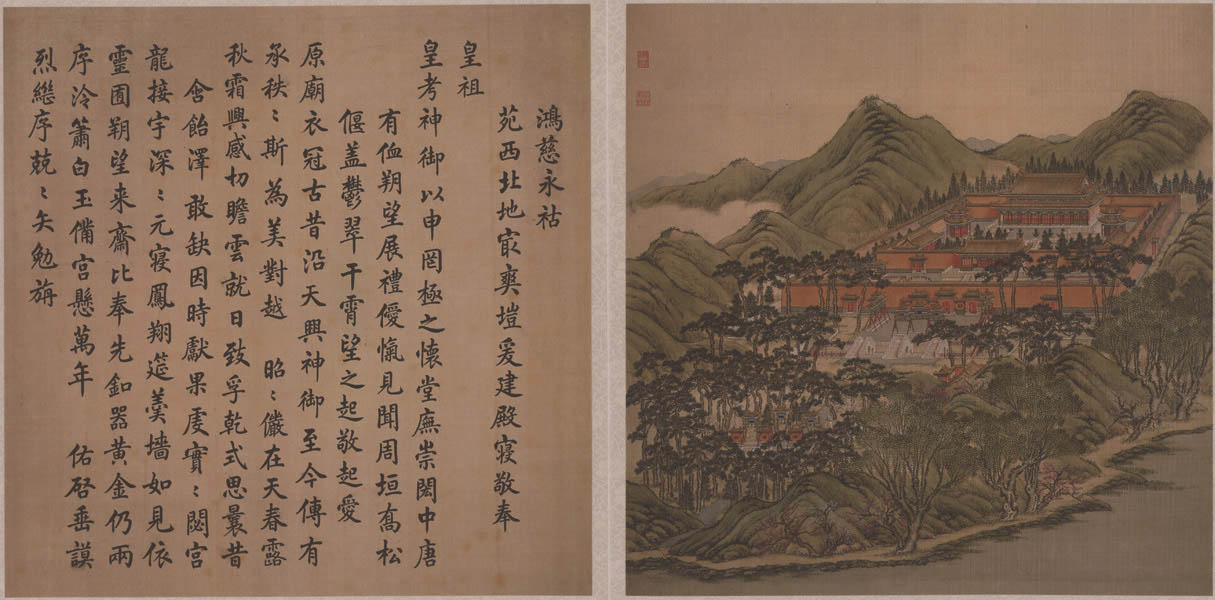 鴻慈永祜
苑西北地㝡爽塏爰建殿寢敬奉
皇祖
皇考神御以申罔極之懷堂廡崇閎中唐
有侐朔望展禮僾愾見聞周垣髙松
偃盖鬱翠干霄望之起敬起愛
原廟衣冠古昔沿天興神御至今傳有
承秩〻斯為美對越 昭〻儼在天春露
秋霜興感切瞻雲就日致孚乾式思曩昔
含飴澤敢缺因時獻果虔實〻閟宮
龍接宇深〻元寝鳳翔筵羹墻如見依
靈囿朔望来齋比奉先釦器黄金仍兩
序泠簫白玉備宮懸萬年 佑啓垂謨
烈繼序兢〻矢勉旃